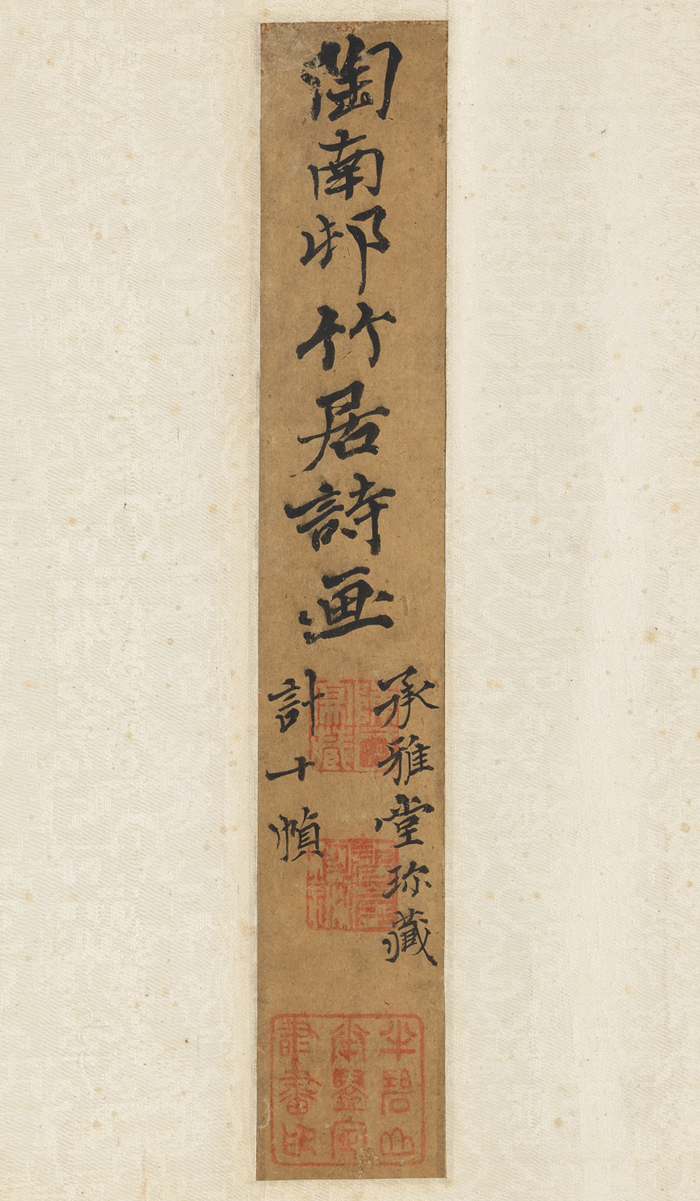 陶南邨竹居詩画
承雅堂珎藏
計十幀